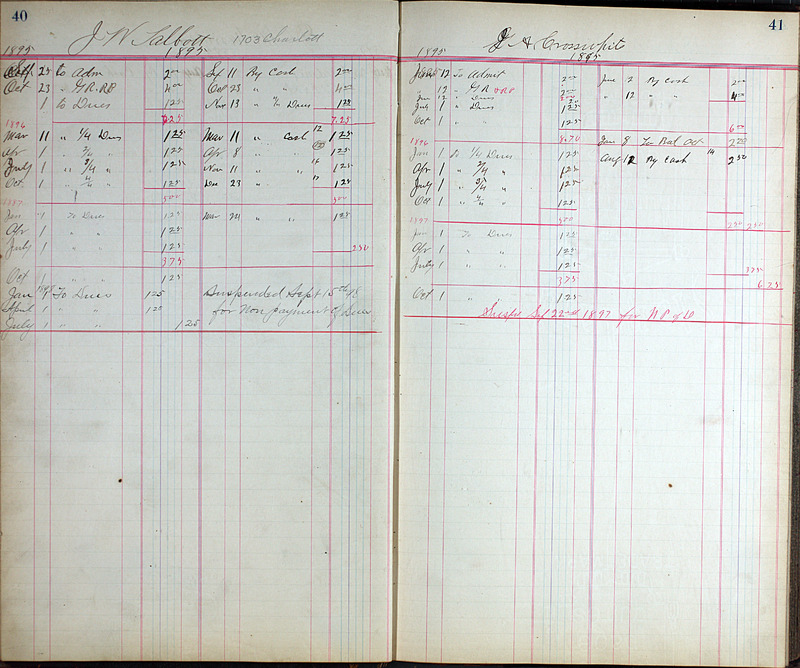 40
J. W. Talbott 1703 Charlott
1895 1895
Sep 23 to Adm 2 00 Sep 11 By Cash 2 00
Oct 23 " G R. RP 4 00 Oct 23 " " 4 00
1 to Dues 1 25 Nov 13 " 1/4 Dues 1 25
7.25 7.25
1896
Mar 11 " 1/4 Dues 1 25 Mar 11 " Cash 12 1 25
Apr 1 " 2/4 " 1 25 Apr 8 " " 1 25
July 1 " 3/4 " 1 25 Nov 11 " " 1 25
Oct 1 " 4/4 " 1 25 Dec 23 " " 1 25
500 500
1897
Jan 1 To Dues 1 25 Mar 24 " " 1 25
Apr 1 " " 1 25
July 1 " " 1 25 2 50
3 75
Oct 1 " " 1 25
Jan 1898 1 To Dues 1 25 Suspended Sept 15th 98
April 1 " " 1 25 for Non payment of Dues
July 1 " " 1 25
41
J. A. Crosswhit
1895 1895
12 To Admit 2 00 June 12 By Cash 2 00
" 12 " G R & RP 2 00 " 12 " " 4 00
Jun 12 " Dues
July 1 " Dues 1 25
Oct 1 " " 1 25 6 00
1896 8.70 Jan 8 To Bal Oct 2 70
Jan 1 To 1/4 Dues 1 25 Aug 12 By Cash 14 2 50
Apr 1 " 2/4 " 1 25
July 1 " 3/4 " 1 25
Oct 1 " 4/4 " 1 25
1897 500 2 50 2 50
Jan 1 To Dues 1 25
Apr 1 " " 1 25
July 1 " " 1 25 3 75
3 75 6.25
Oct 1 " 1 25
Suspd Sep 22nd 1897 for N P of D